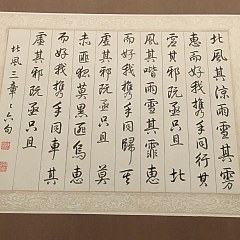 北風其涼雨雪其雱
惠而好我携手同行其
虛其邪既亟只且 北
風其喈雨雪其霏惠
而好我携手同歸其
虛其邪既亟只且 莫
赤匪狐莫黑匪烏惠
而好我携手同車其
虛其邪既亟只且
北風三章〻六句